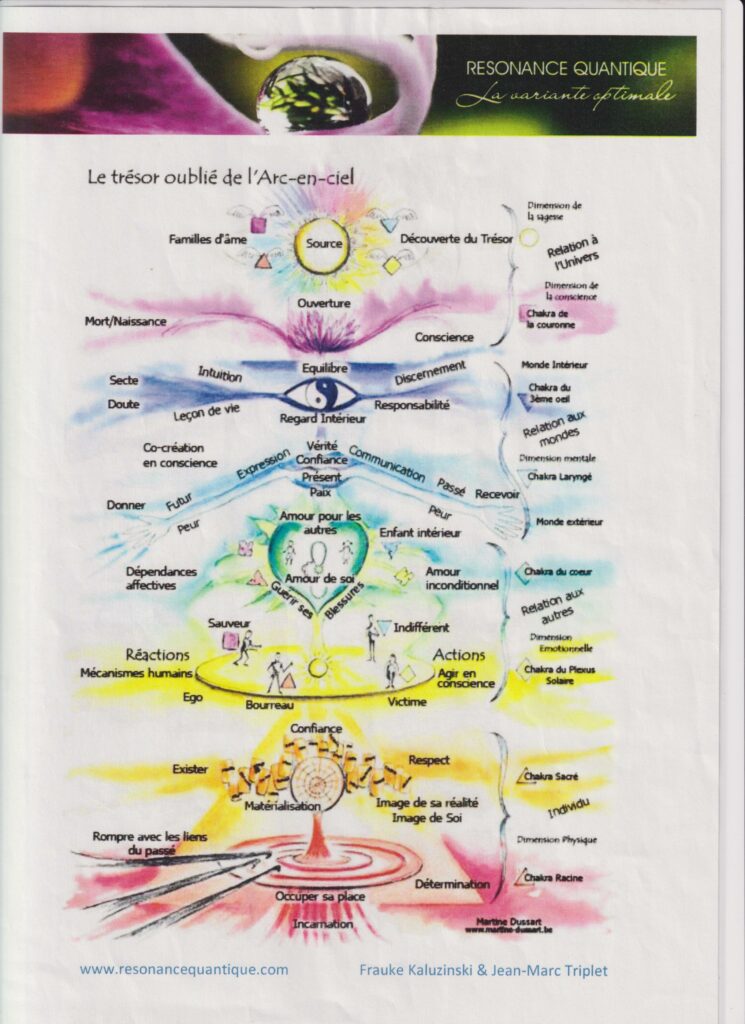 RESONANCE QUANTIQUE
La variante optimale
Le trésor oublié de l'Arc-en-ciel
Dimension de
la sagesse
Familles d'âme
Source
Découverte du Trésor
Relation à
l'Univers
Ouverture
Dimension de
la conscience
Mort/Naissance
Chakra de
la couronne
Conscience
Equilibre
Monde Intérieur
Secte
Intuition
Discernement
Chakra du
3ème oeil
Doute
Leçon de vie
Responsabilité
Regard Intérieur
Relation aux
mondes
Co-création
en conscience
Vérité
Confiance
Expression
Communication
Dimension mentale
Présent
Passé
Chakra Laryngé
Paix
Donner
Futur
Recevoir
Peur
Peur
Monde extérieur
Amour pour les
autres
Enfant intérieur
Dépendances
affectives
Amour de soi
Amour
inconditionnel
Chakra du coeur
Guérir ses Blessures
Relation aux
autres
Sauveur
Indifférent
Dimension
Emotionnelle
Réactions
Actions
Mécanismes humains
Agir en
conscience
Chakra du Plexus
Solaire
Ego
Bourreau
Victime
Confiance
Exister
Respect
Chakra Sacré
Matérialisation
Image de sa réalité
Image de Soi
Individu
Rompre avec les liens
du passé
Dimension Physique
Détermination
Chakra Racine
Occuper sa place
Incarnation
Martine Dussart
www.martine-dussart.be
www.resonancequantique.com
Frauke Kaluzinski & Jean-Marc Triplet